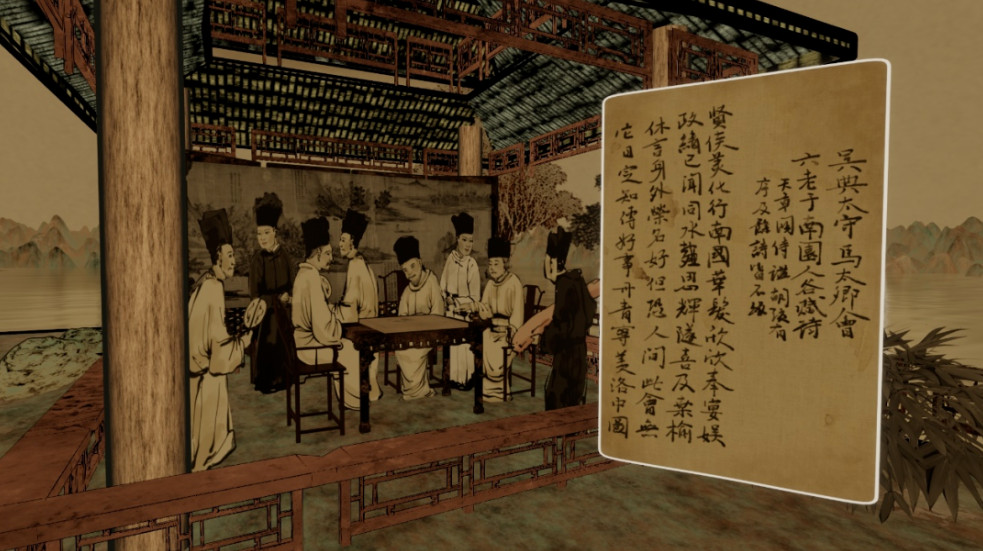 吳興太守馬太卿會
六老于南園人各賦詩
天章閣侍講胡瑗有
序及詩皆石
賢侯美化行南國華髮欣欣奉宴娛
政績已聞同水薤恩輝遂喜及桑榆
休言身外榮名好但恐人間此會無
它日定知傳好事丹青寧羡洛中圖